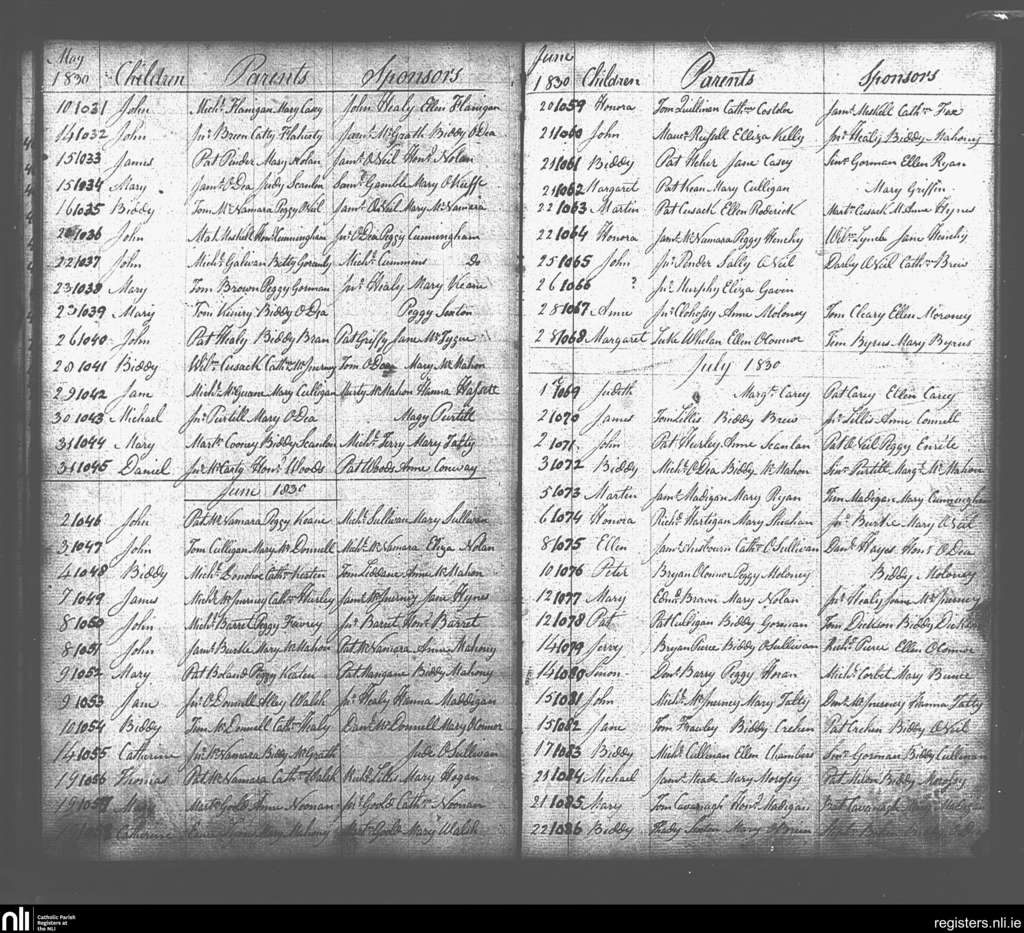 May
1830 Children Parents Sponsors
10 1031 John Michl. Flanigan Mary Casey John Healy Ellen Flanigan
14 1032 John Jno. Breen Catty Flaharty Jams. McGrath Biddy O Dea
15 1033 James Pat Pinder Mary Nolan Jams. O Neil Honr. Nolan
15 1034 Mary Jams. O Dea Judy Scanlan Saml. Gamble Mary O Keeffe
16 1035 Biddy Tom McNamara Peggy O Neil Jams. O Neil Mary McNamara
20 1036 John Meskell Honr. Cunningham Jno. O Dea Peggy Cunningham
22 1037 John Michl. Galwan Betty Michl. Cummens do
23 1038 Mary Tom Brown Peggy Gorman Jno. Healy Mary Keane
25 1039 Mary Tom Keniry Biddy O Dea Peggy Sexton
26 1040 John Pat Healy Biddy Bran Pat Griffy Jane
28 1041 Biddy Wilm. Cusack Cathn. McInerney Tom O Dea Mary McMahon
29 1042 Jane Michl. McGuane Mary Culligan Marty McMahon Hanna Hassett
30 1043 Michael Jno. Purtill Mary O Dea Magy Purtill
31 1044 Mary Mark Cooney Biddy Scanlan Michl. Terry Mary Fatty
31 1045 Daniel Jno. McCarty Honr. Woods Pat Woods Anne Conway
June 1830
2 1046 John Pat McNamara Peggy Keane Michl. Sullivan Mary Sullivan
3 1047 John Tom Culligan Mary McDonnell Michl. McNamara Eliza Nolan
4 1048 Biddy Michl. Donohoe Cathn. Keaten Tom Liddane Anne McMahon
7 1049 James Michl. McInerney Cathn. Hurley Jams. McInerney Jane Hynes
8 1050 John Michl. Barret Peggy Jno. Barret Honr. Barret
8 1051 John Jams. Burke Mary McMahon Pat McNamara Anne Mahony
9 1052 Mary Pat Boland Peggy Keaten Pat Hanigane Biddy Mahony
9 1053 Jane Jno. O Donnell Alley Walsh Jno. Healy Hanna Maddigan
10 1054 Biddy Tom McDonnell Cathn. Healy Danl. McDonnell Mary O Connor
14 1055 Catherine Jno. McNamara Biddy McGrath Jude O Sullivan
19 1056 Thomas Pat McNamara Cathn. Walsh Richd. Lillis Mary Hogan
19 1057 Mary Mark Goold Anne Noonan Jno. Goold Cathn. Noonan
1058 Catherine Mary Mahony Mart. Goold Mary Walsh
June
1830 Children Parents Sponsors
20 1059 Honora Tom Quillinan Cathn. Costelon Jams. Meskell Cathn. Fox
21 1060 John Maus. Russell Elliza Kelly Jno. Healy Biddy Mahony
21 1061 Biddy Pat Feher Jane Casey Simn. Gorman Ellen Ryan
21 1062 Margaret Pat Kean Mary Culligan Mary Griffin
22 1063 Martin Pat Cusack Ellen Roderick Mart. Cusack M. Anne Hynes
22 1064 Honora Jams. McNamara Peggy Henchy Wilm. Lynch Jane Henchy
25 1065 John Jno. Pinder Sally O Neil Darby O Neil Cathn. Brew
26 1066 ? Jno. Murphy Eliza Gaven
28 1067 Anne Jno. Clohessy Anne Moloney Tom Cleary Ellen Moroney
28 1068 Margaret Luke Whelan Ellen O Connor Tom Byrns Mary Byrns
July 1830
1 1069 Judith Margt. Carey Pat Carey Ellen Carey
2 1070 James Tom Lillis Biddy Brew Jno. Lillis Anne Connell
2 1071 John Pat Hurley Anne Scanlan Pat O Neil Peggy Enrile
3 1072 Biddy Michl. O Dea Biddy McMahon Simn. Purtill Margt. McMahon
5 1073 Martin Jams. Madigan Mary Ryan Tim Madigan Mary Cunningham
6 1074 Honora Richd. Hartigan Mary Sheehan Jno. Burke Mary O Neil
8 1075 Ellen Jams. Cathn. O Sullivan Danl. Hayes Honr. O Dea
10 1076 Peter Bryan O Connor Peggy Moloney Biddy Moloney
12 1077 Mary Edmd. Brown Mary Nolan Jno. Healy Jane McInerney
12 1078 Pat Pat Culligan Biddy Gorman Tom Dickson Biddy Dickson
14 1079 Jervy Bryan Pierce Biddy O Sullivan Richd. Pierce Ellen O Connor
14 1080 Simon Danl. Barry Peggy Horan Michl. Corbet Mary Bunce
15 1081 John Michl. McInerney Mary Fatty Danl. McInerney Hanna Fatty
15 1082 Jane Tom Frawley Biddy Crehen Pat Crehen Biddy O Neil
17 1083 Biddy Michl. Cullinan Ellen Chambers Simn. Gorman Biddy Cullinan
21 1084 Michael Jams. Keane Mary Morossy Pat Biddy Morossy
21 1085 Mary Tom Cavanagh Honr. Madigan Pat Cavanagh Mary
22 1086 Biddy Thady Sexton Mary O Brien
nli Catholic Parish
Registers at
the NLI
registers.nli.ie